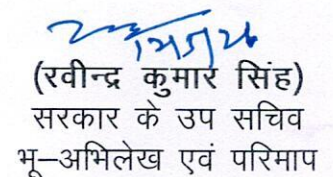 (रवीन्द्र कुमार सिंह)
सरकार के उप सचिव
भू–अभिलेख एवं परिमाप